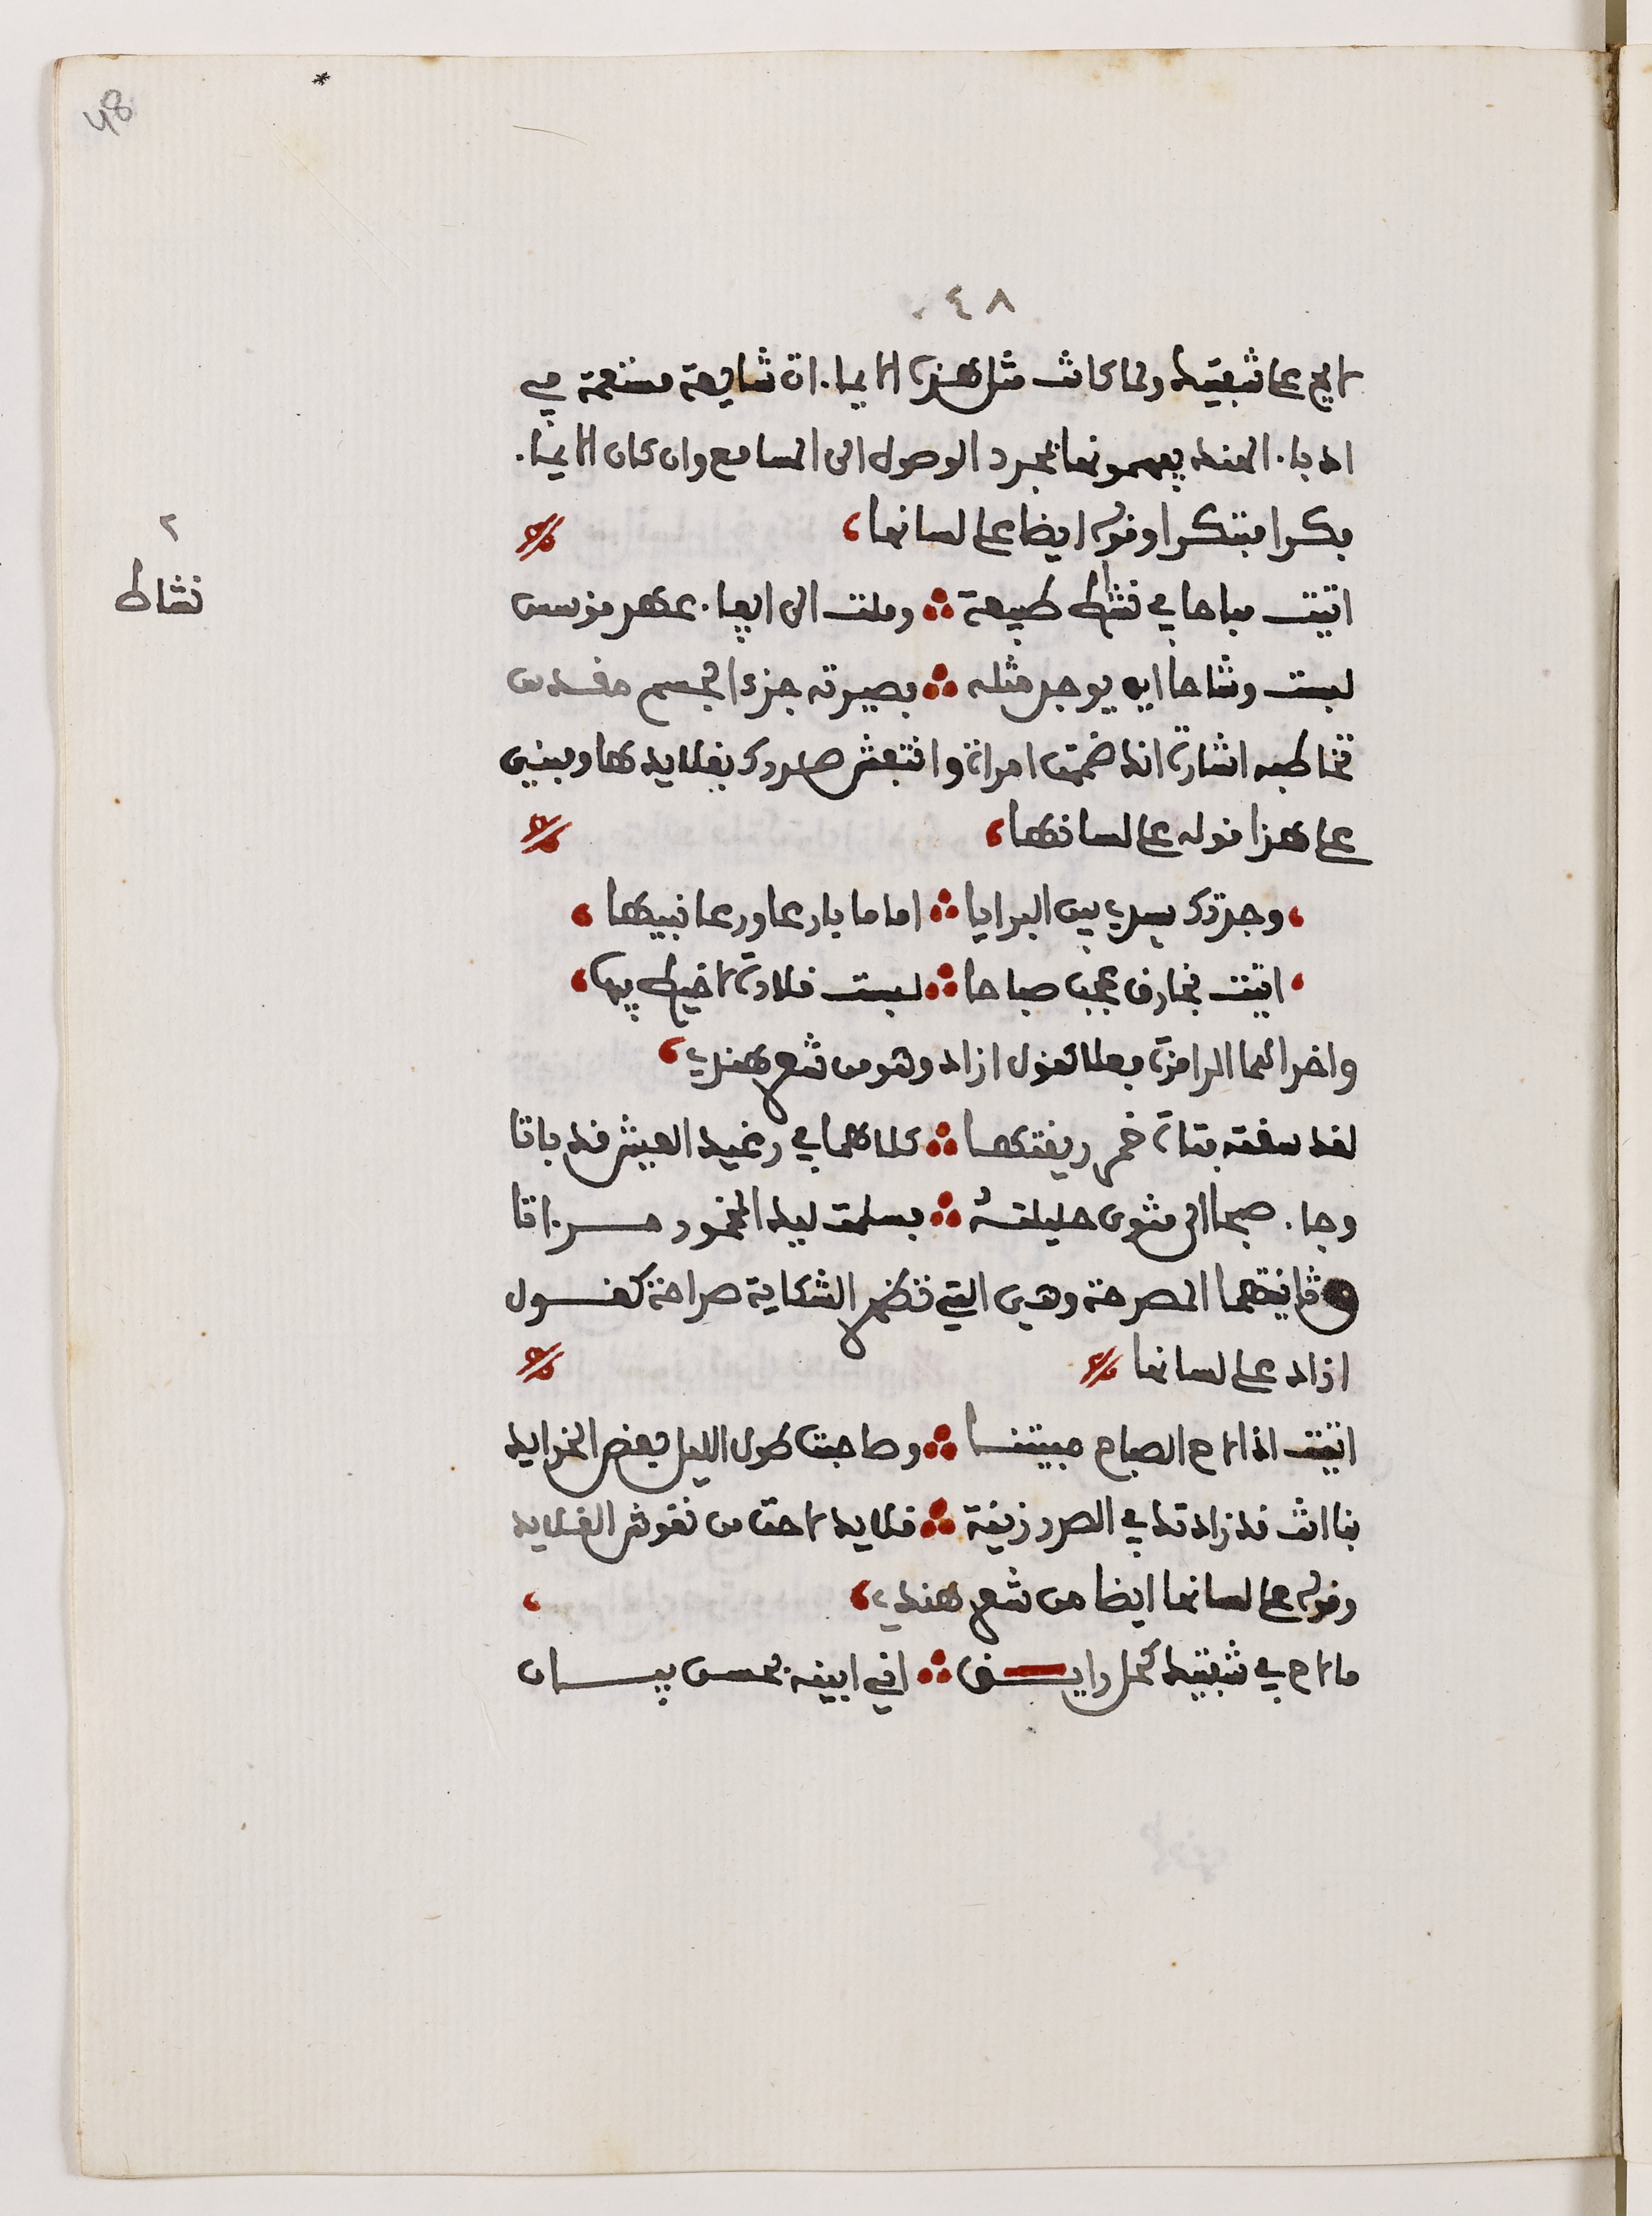 48
٤٨
لايح على شفتيك ولما كانت مثل هذه الايماءات شايعة مستعملة في
ادباء الهند يفهمونها بمجرد الوصول الى السامع وان كان الايماء
بكرا مبتكرا وقوله ايضا على لسانها
٢
نشاط
اتيت صباحا في نشاط طبيعة وملت الى ايفاء عهد مؤسس
لبست وشاحا اين يوجد مثله بصيرته جزءا لجسم مقدس
تخاطبه اشارة انك ضممت امراة وانتقش صدرك بقلايدها ومبنى
على هذا قوله على لسانها
وجدتك سيدي بين البرايا اماما بارعا ورعا نبيها
اتيت بخارق عجب صباحا لبست قلادة لا خيط فيها
واخر الهما الرامزة بعلا تقول ازاد وهو من شعر هندي
لقد سقته فتاة خمر ريقتها كلاهما في رغيد العيش قد باتا
وجاء صبحا الى مثوى حليلته فسلمت ليد المخمور مراتا
ثانيتهما المصرحة وهي التي تظهر الشكاية صراحة كقول
ازاد على لسانها
اتيت اذا لاح الصباح مبيتنا وصاحبت طول الليل بعض الخرايد
بنا انت قد زادتك في الصدر زينة قلايد لاحت من نقوش القلايد
وقوله على لسانها ايضا من شعر هندي
ما لاح في شفتيك كحل رايق اني ابينه بحسن بيان